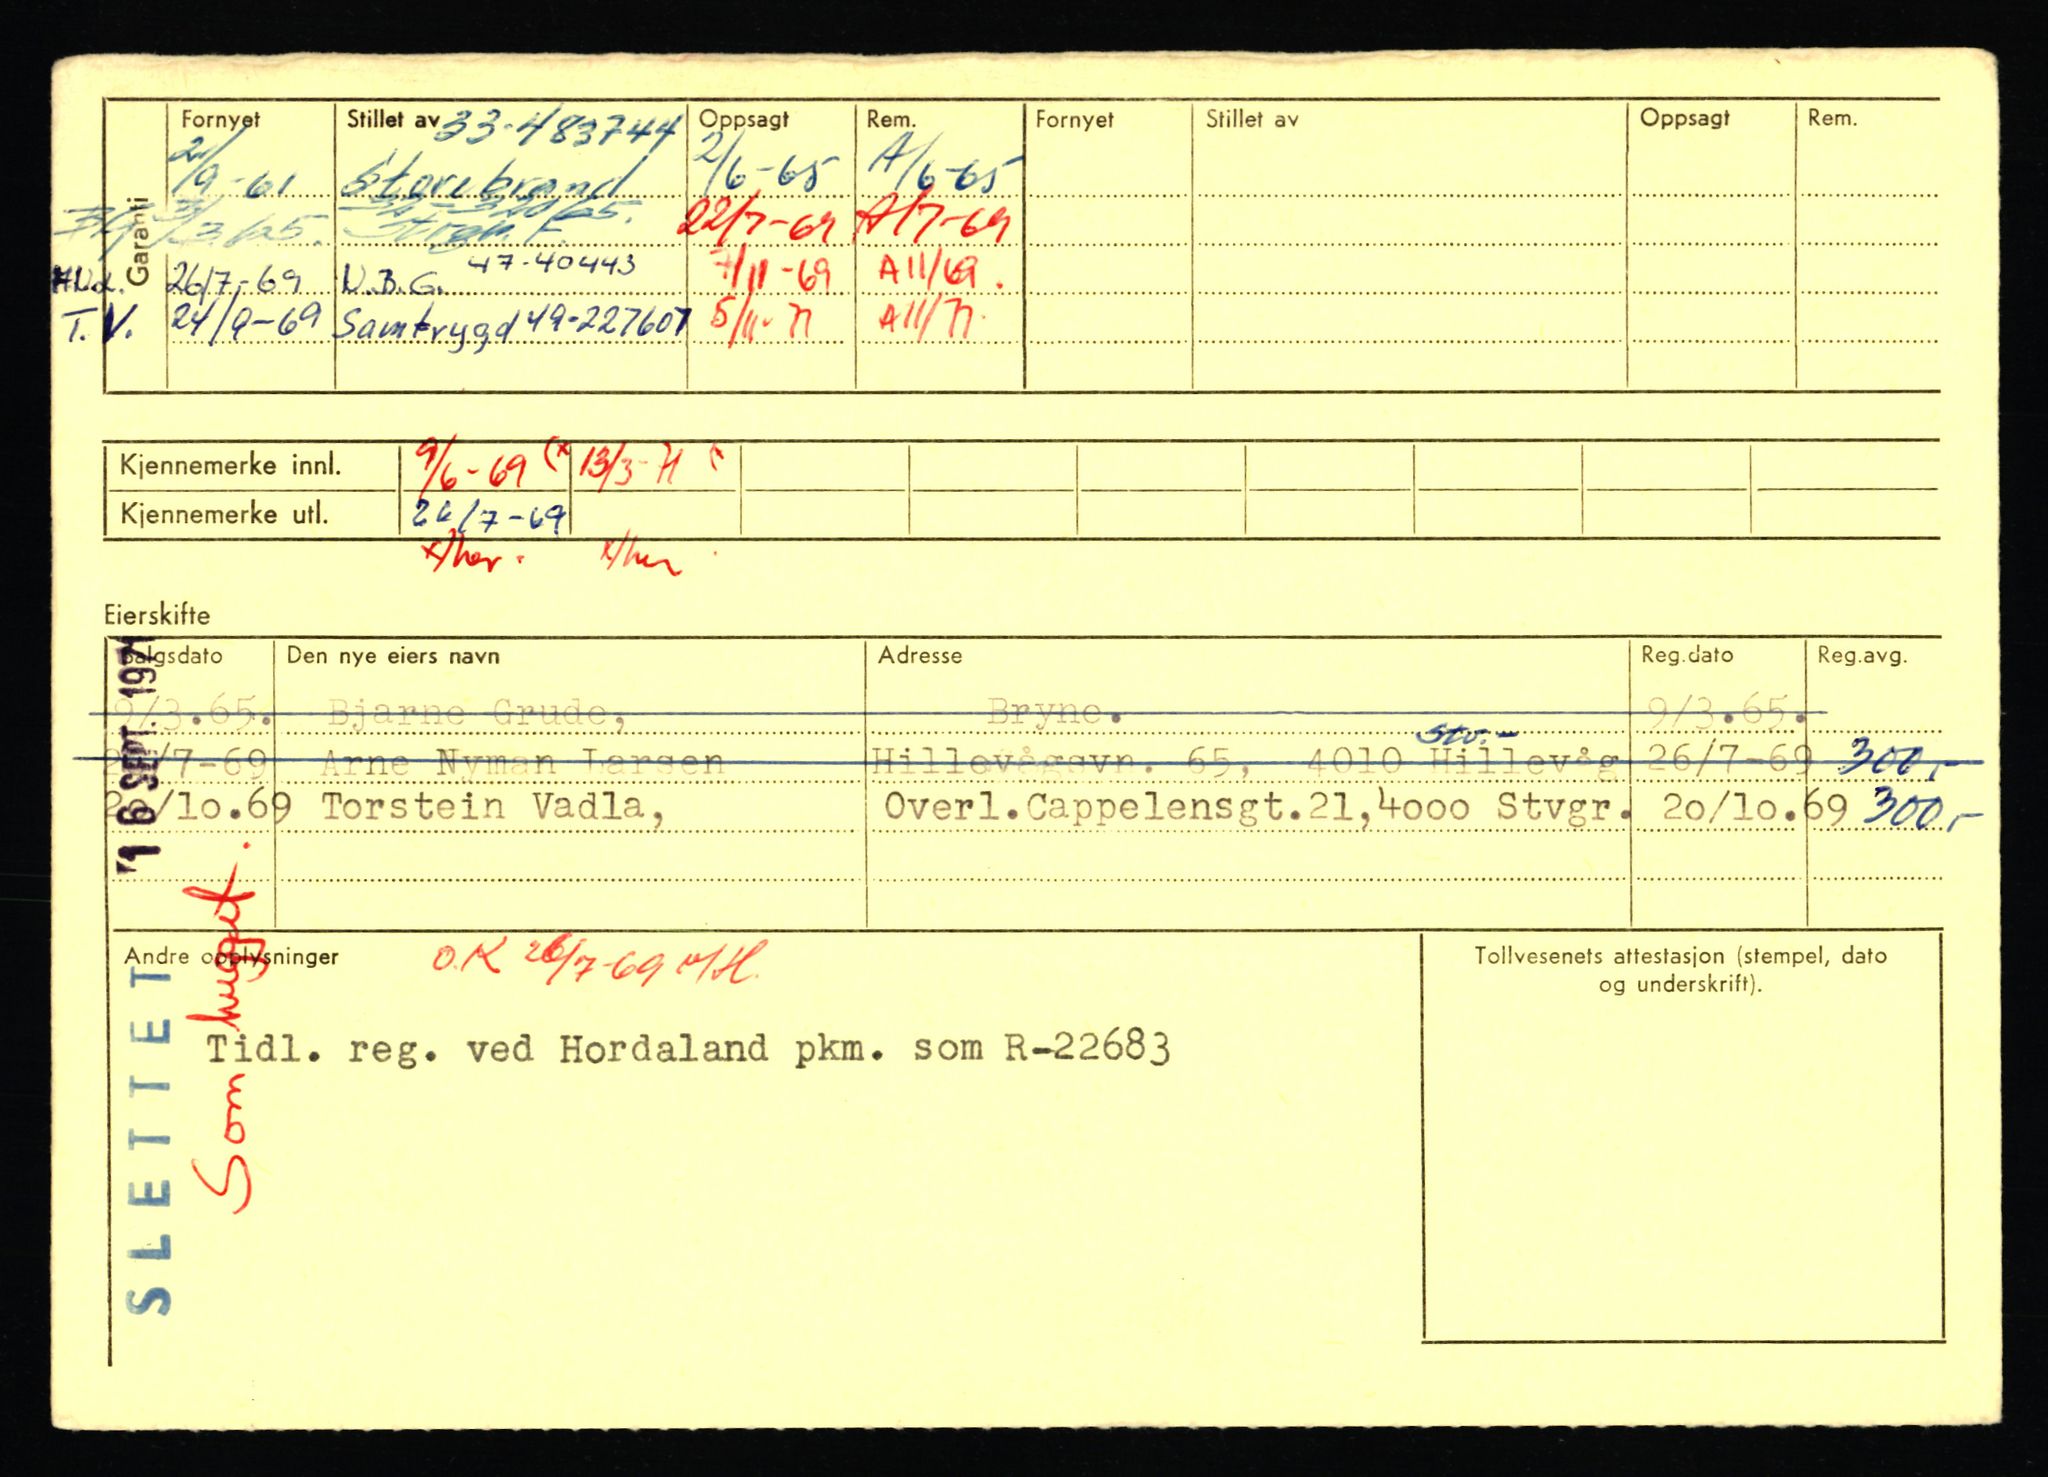 Garanti
Fornyet Stillet av 33-483744 Oppsagt Rem. Fornyet Stillet av Oppsagt Rem.
2/9-61 Storebrand 2/6-65 A/6-65
22/7-69 A/7-69
26/7-69 N.B.G. 47-40443 7/11-69 A11/69.
T.V. 24/9-69 Samtrygd 49-227607 5/11-71 A11/71.
Kjennemerke innl. 9/6-69 (x 13/3-71
Kjennemerke utl. 26/7-69
x/her. x/her
Eierskifte
Salgsdato Den nye eiers navn Adresse Reg.dato Reg.avg.
9/3.65. Bjarne Grude, Bryne. 9/3.65.
Stv.-
/7-69 Arne Nyman Larsen Hillevågsvn. 65, 4010 Hillevåg 26/7-69 300,-
/10.69 Torstein Vadla, Overl.Cappelensgt.21,4000 Stvgr. 20/10.69 300,-
16 SEPT. 1971
Andre opplysninger O.K 26/7-69
Tollvesenets attestasjon (stempel, dato
og underskrift).
Tidl. reg. ved Hordaland pkm. som R-22683
SLETTET
Som hugget.